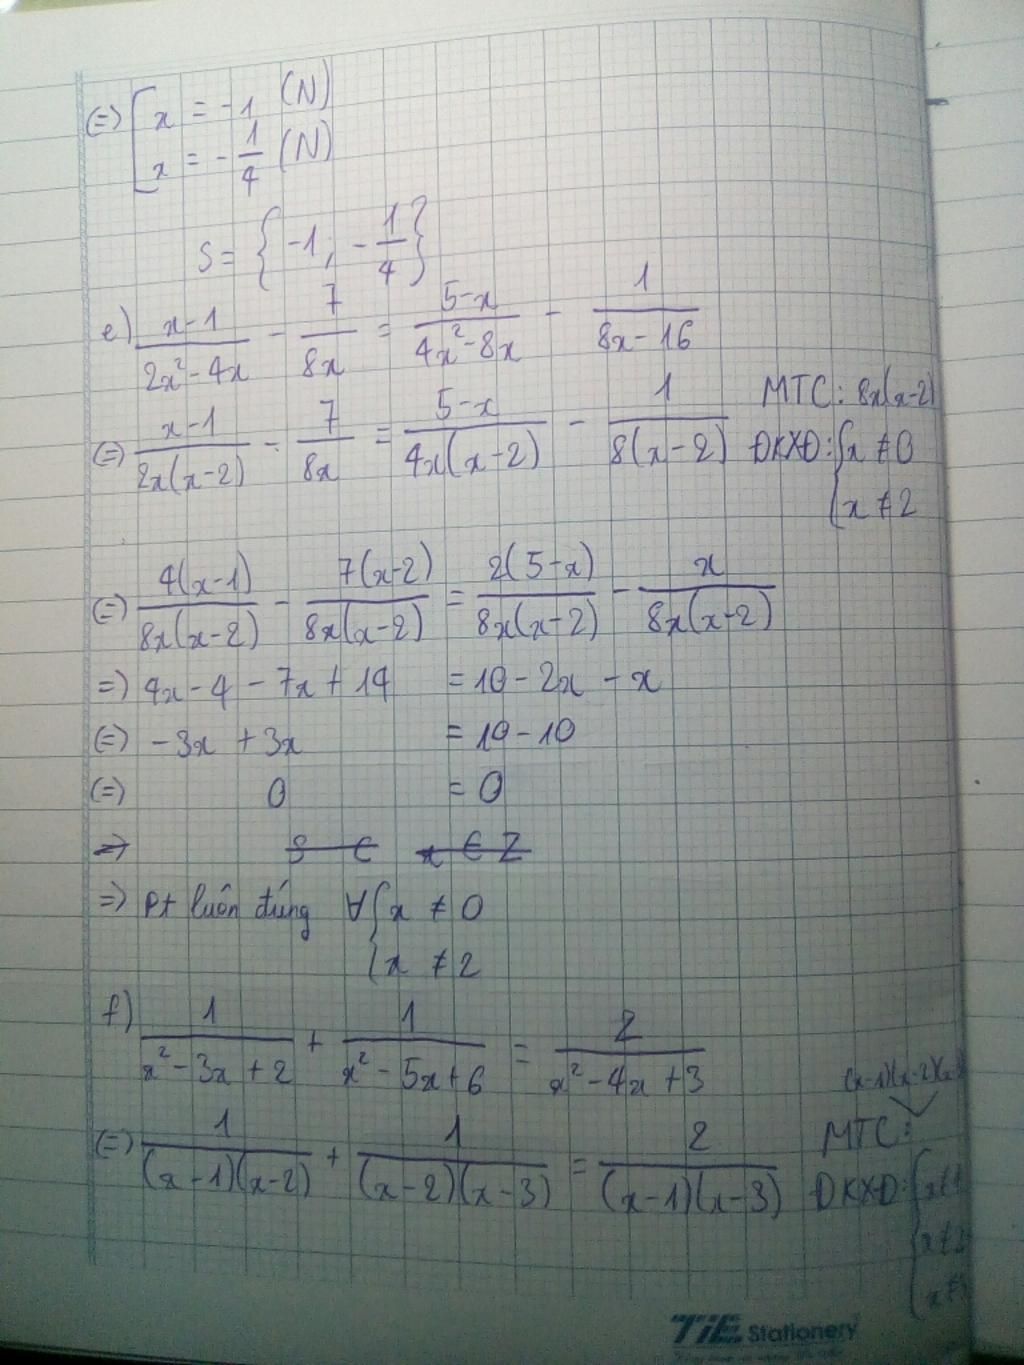 (=) [ x = -1 (N)
x = -1/4 (N)
S = { -1; -1/4 }
e) (x-1)/(2x²-4x) - 7/(8x) = (5-x)/(4x²-8x) - 1/(8x-16)
(=) (x-1)/(2x(x-2)) - 7/(8x) = (5-x)/(4x(x-2)) - 1/(8(x-2)) MTC: 8x(x-2)
ĐKXĐ: { x ≠ 0
x ≠ 2
(=) 4(x-1)/(8x(x-2)) - 7(x-2)/(8x(x-2)) = 2(5-x)/(8x(x-2)) - x/(8x(x-2))
=) 4x-4-7x+14 = 10-2x-x
(=) -3x+3x = 10-10
(=) 0 = 0
=> S ∈ x ∈ Z
=> Pt luôn đúng ∀ { x ≠ 0
x ≠ 2
f) 1/(x²-3x+2) + 1/(x²-5x+6) = 2/(x²-4x+3)
(x-1)(x-2)(x-
(=) 1/((x-1)(x-2)) + 1/((x-2)(x-3)) = 2/((x-1)(x-3)) MTC:
ĐKXĐ: { x ≠ 1
x ≠
x ≠
TiE Stationery